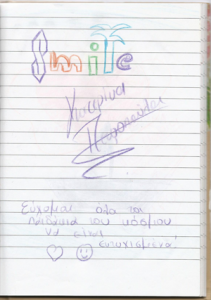 Smile
Κατερίνα
Εύχομαι όλα τα
παιδάκια του κόσμου
να είναι
ευτυχισμένα